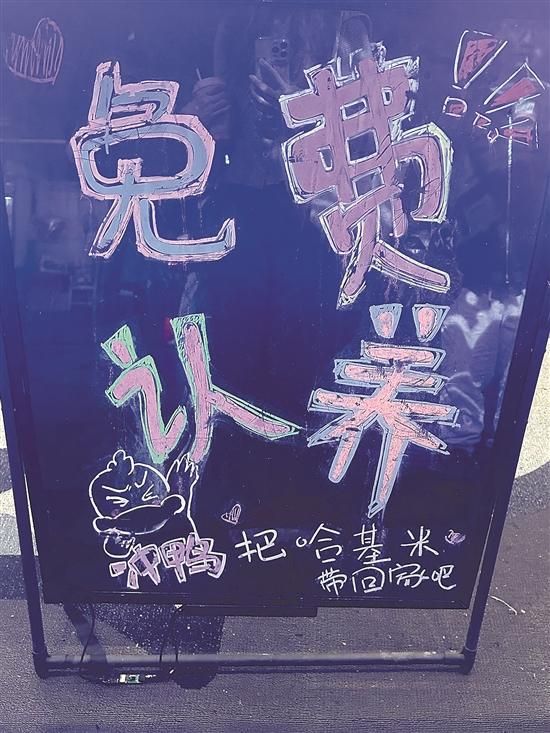 免费
认养
冲鸭
把哈基米
带回家吧